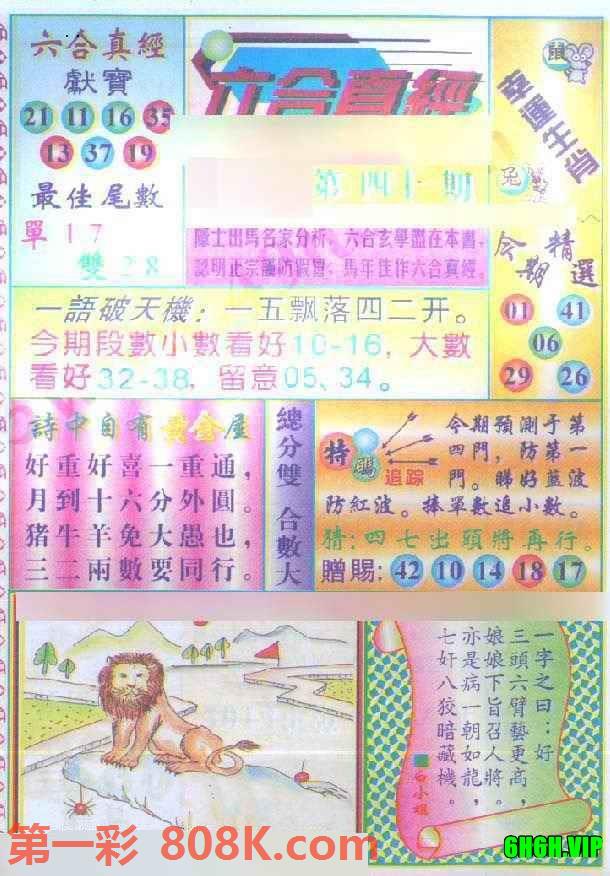 六合真經
獻寶
21 11 16 35
13 37 19
最佳尾數
單 1 7
雙 2 8
六合真經
期
隱士出馬名家分析,六合玄學盡在本書,
認明正宗謹防假冒,馬年佳作六合真經.
鼠
幸運生肖
兔
今期精選
01 41
06
29 26
一語破天機:一五飘落四二开。
今期段數小數看好10-16,大數
看好32-38,留意05、34。
詩中自有黃金屋
好重好喜一重通,
月到十六分外圓。
猪牛羊兔大愚也,
三二兩數要同行。
總分雙 合數大
特碼
追踪
今期預測于第
四門,防第一
門。睇好藍波
防紅波。捧單數追小數。
猜:四七出頭將再行。
贈賜:42 10 14 18 17
一字之曰:好
三頭六臂藝更高,
娘娘下旨召人將。
亦是病一朝如龍,
七奸八狡暗藏機。
白小姐
第一彩 808K.com
6H6H.VIP